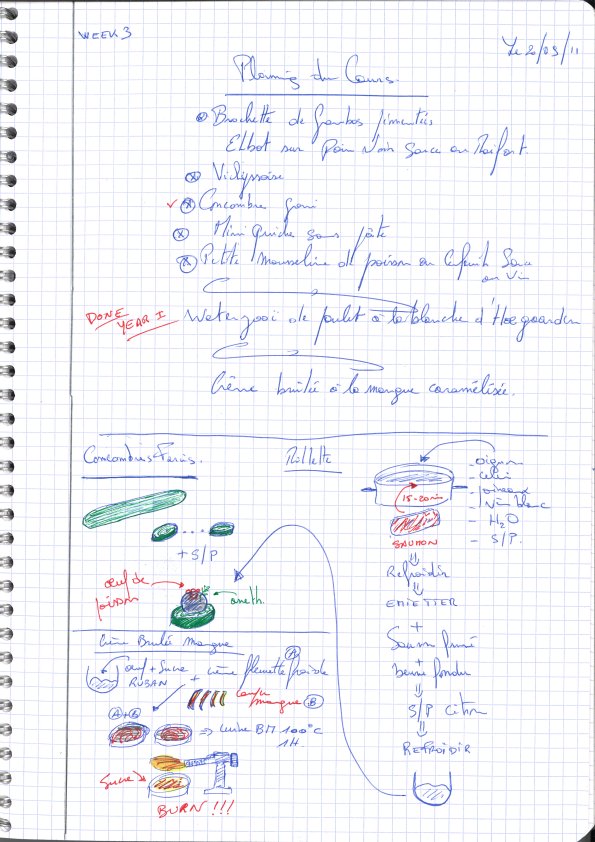 WEEK 3
Le 20/09/11
Planning du Cours.
Brochette de Gambas pimentées
Elbot sur Pain Noir Sauce au Raifort.
Vichyssoise
Concombre farci
Mini Quiche sans pâte
Petite mousseline de poisson au Cerfeuil Sauce
au Vin
DONE
YEAR I
Waterzooi de poulet à la blanche d'Hoegaarden
Crème brulée à la mangue caramélisée.
Concombres Farcis.
+ S/P
œuf de
poisson
aneth.
Rillette
- oignon
- celeri
- poireaux
- Vin blanc
- H2O
- S/P.
15-20 min
SAUMON
Refroidir
EMIETTER
+
Saumon fumé
+
beurre fondu
S/P Citron
REFROIDIR
Crème Brulée Mangue
œuf + Sucre
RUBAN
+ crème fleurette froide
A
mangue B
A+B
Cuire BM 100°C
1H
Sucre
BURN!!!